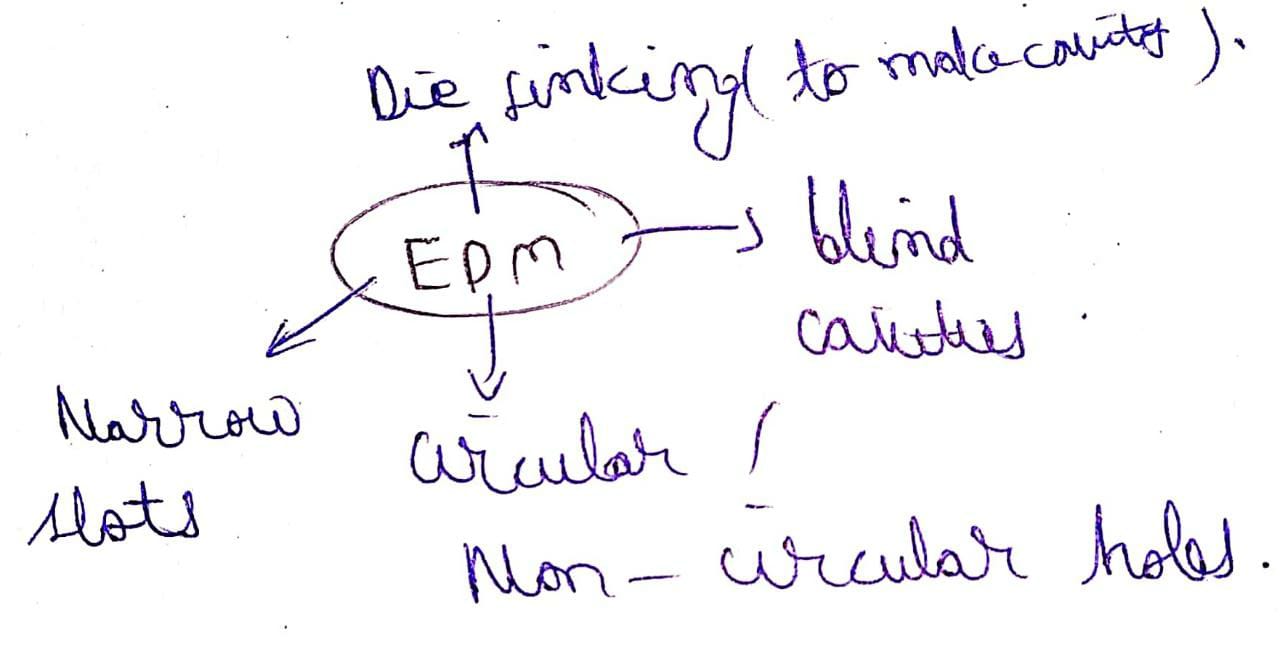 Die sinking (to make cavity).
EDM
blind
cavities
Narrow
slots
circular /
Non - circular holes.